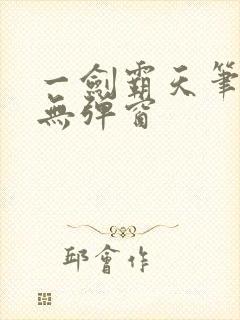 一劍霸天筆
無彈窗
邱會作